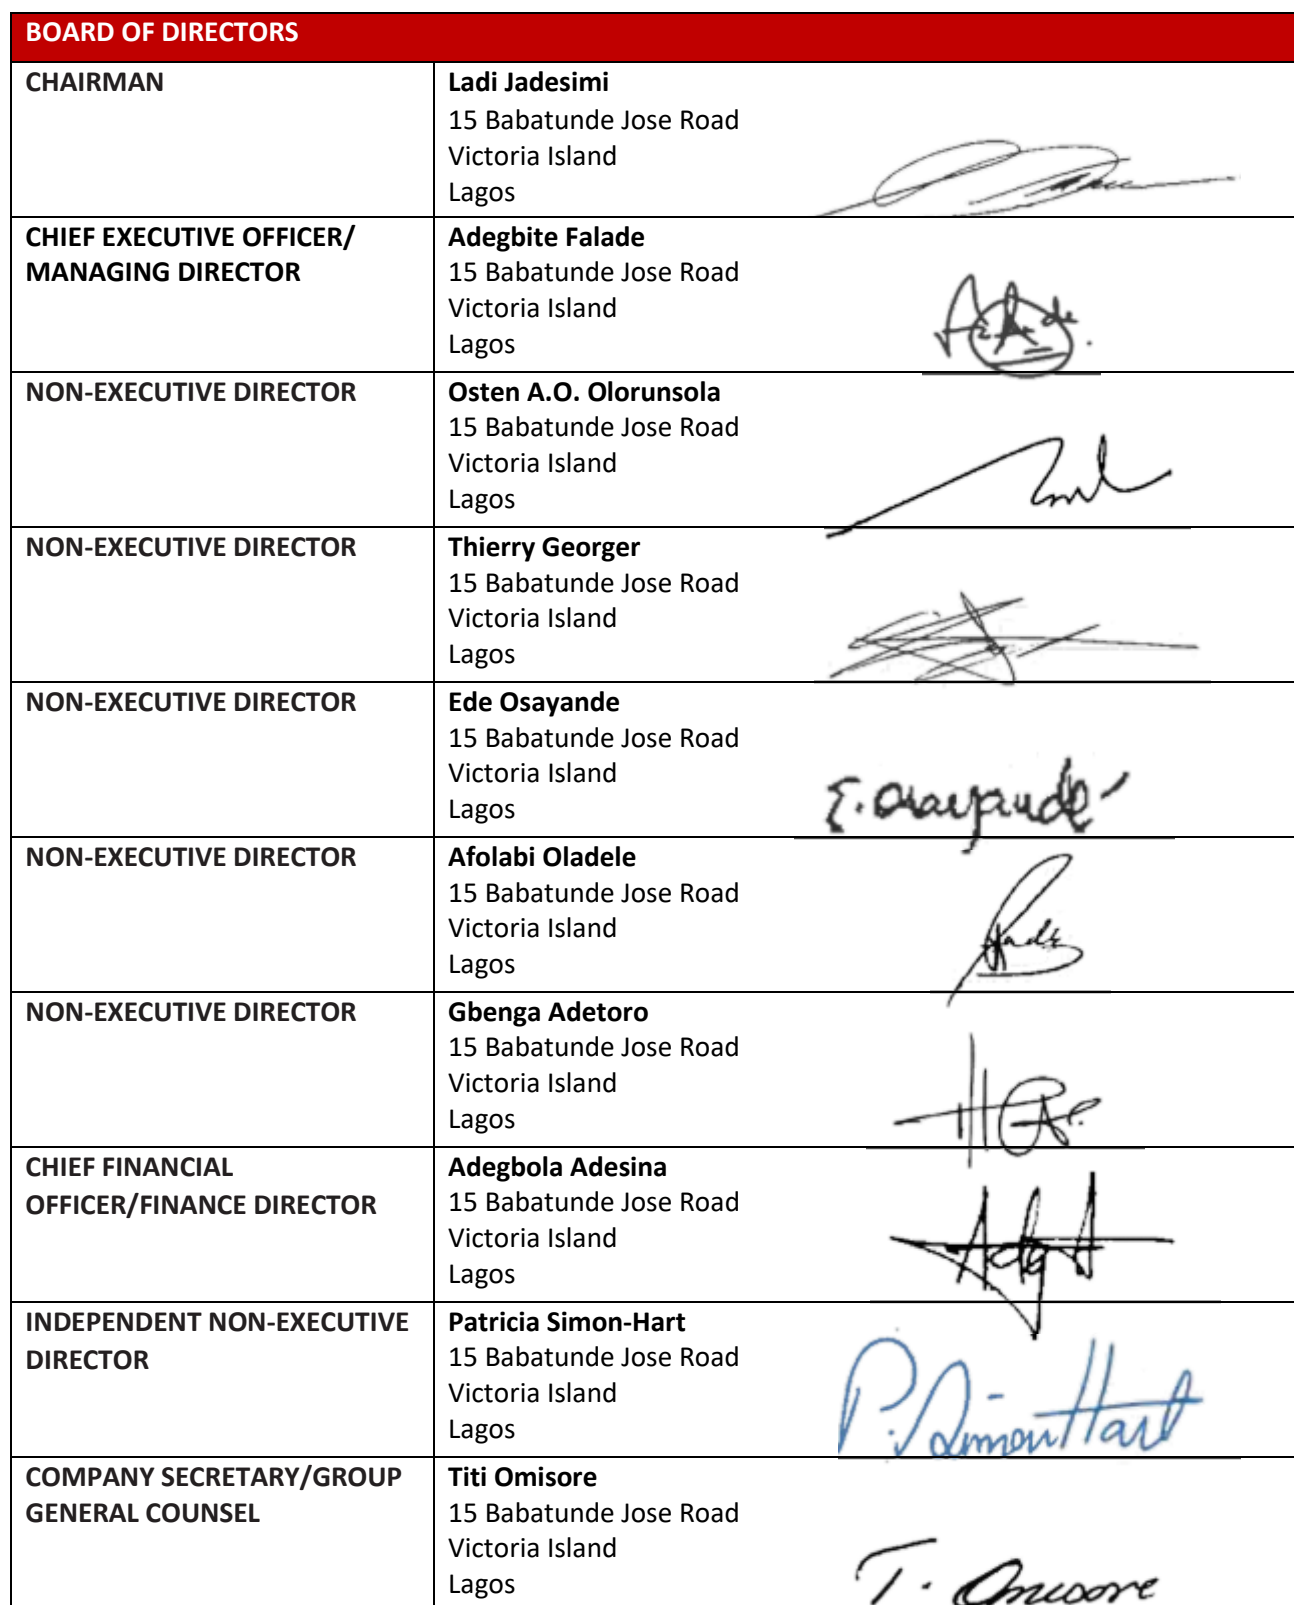 BOARD OF DIRECTORS
CHAIRMAN
Ladi Jadesimi
15 Babatunde Jose Road
Victoria Island
Lagos
CHIEF EXECUTIVE OFFICER/
MANAGING DIRECTOR
Adegbite Falade
15 Babatunde Jose Road
Victoria Island
Lagos
NON-EXECUTIVE DIRECTOR
Osten A.O. Olorunsola
15 Babatunde Jose Road
Victoria Island
Lagos
NON-EXECUTIVE DIRECTOR
Thierry Georger
15 Babatunde Jose Road
Victoria Island
Lagos
NON-EXECUTIVE DIRECTOR
Ede Osayande
15 Babatunde Jose Road
Victoria Island
Lagos
E. Osayande
NON-EXECUTIVE DIRECTOR
Afolabi Oladele
15 Babatunde Jose Road
Victoria Island
Lagos
NON-EXECUTIVE DIRECTOR
Gbenga Adetoro
15 Babatunde Jose Road
Victoria Island
Lagos
CHIEF FINANCIAL
OFFICER/FINANCE DIRECTOR
Adegbola Adesina
15 Babatunde Jose Road
Victoria Island
Lagos
INDEPENDENT NON-EXECUTIVE
DIRECTOR
Patricia Simon-Hart
15 Babatunde Jose Road
Victoria Island
Lagos
P. Simon Hart
COMPANY SECRETARY/GROUP
GENERAL COUNSEL
Titi Omisore
15 Babatunde Jose Road
Victoria Island
Lagos
T. Omisore